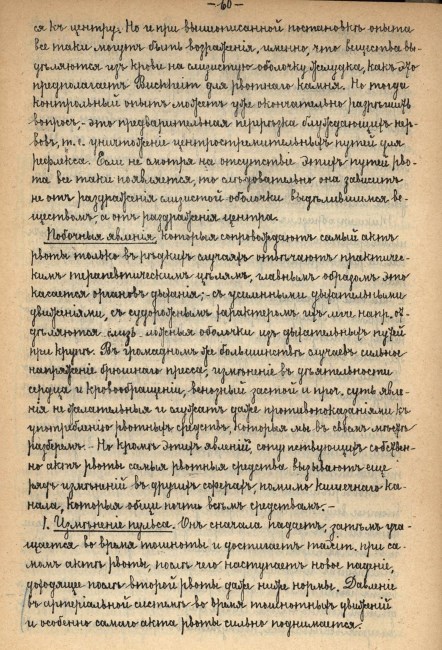 - 60 -
ся къ центру. Но и при вышеописанной постановкѣ опыта
все таки могутъ быть возраженія, именно, что вещества вы-
дѣляются изъ крови на слизистую оболочку желудка, какъ это
предполагаетъ Buchheim для рвотнаго камня. Но тогда
контрольный опытъ можетъ уже окончательно разрѣшить
вопросъ,-это предварительная перерѣзка блуждающихъ нер-
вовъ, т.е. уничтоженіе центростремительныхъ путей для
рефлекса. Если не смотря на отсутствіе этихъ путей рво-
та все таки появляется, то слѣдовательно она зависитъ
не отъ раздраженія слизистой оболочки выдѣлившимся ве-
ществомъ, а отъ раздраженія центра.
Побочныя явленія, которыя сопровождаютъ самый актъ
рвоты только въ рѣдкихъ случаяхъ отвѣчаютъ практичес-
кимъ терапевтическимъ цѣлямъ, главнымъ образомъ это
касается органовъ дыханія,-съ усиленными дыхательными
движеніями, съ судорожнымъ характеромъ ихъ легче напр. от-
дѣляются ложныя оболочки изъ дыхательныхъ путей
при крупѣ. Въ громадномъ же большинствѣ случаевъ сильное
напряженіе брюшнаго пресса, измѣненіе въ дѣятельности
сердца и кровообращеніи, венозный застой и проч. суть явле-
нія не желательныя и служатъ даже противопоказаніями къ
употребленію рвотныхъ средствъ, которыя мы въ своемъ мѣстѣ
разберемъ.- Но кромѣ этихъ явленій, сопутствующихъ собствен-
но актъ рвоты самыя рвотныя средства вызываютъ еще
рядъ измѣненій въ другихъ сферахъ, помимо кишечнаго ка-
нала, которыя общи почти всѣмъ средствамъ.-
1. Измѣненіе пульса. Онъ сначала падаетъ, затѣмъ уча-
щается во время тошноты и достигаетъ maxim. при са-
момъ актѣ рвоты, послѣ чего наступаетъ новое паденіе,
доходящее послѣ второй рвоты даже ниже нормы. Давленіе
въ артеріальной системѣ во время тошнотныхъ движеній
и особенно самаго акта рвоты сильно поднимается.